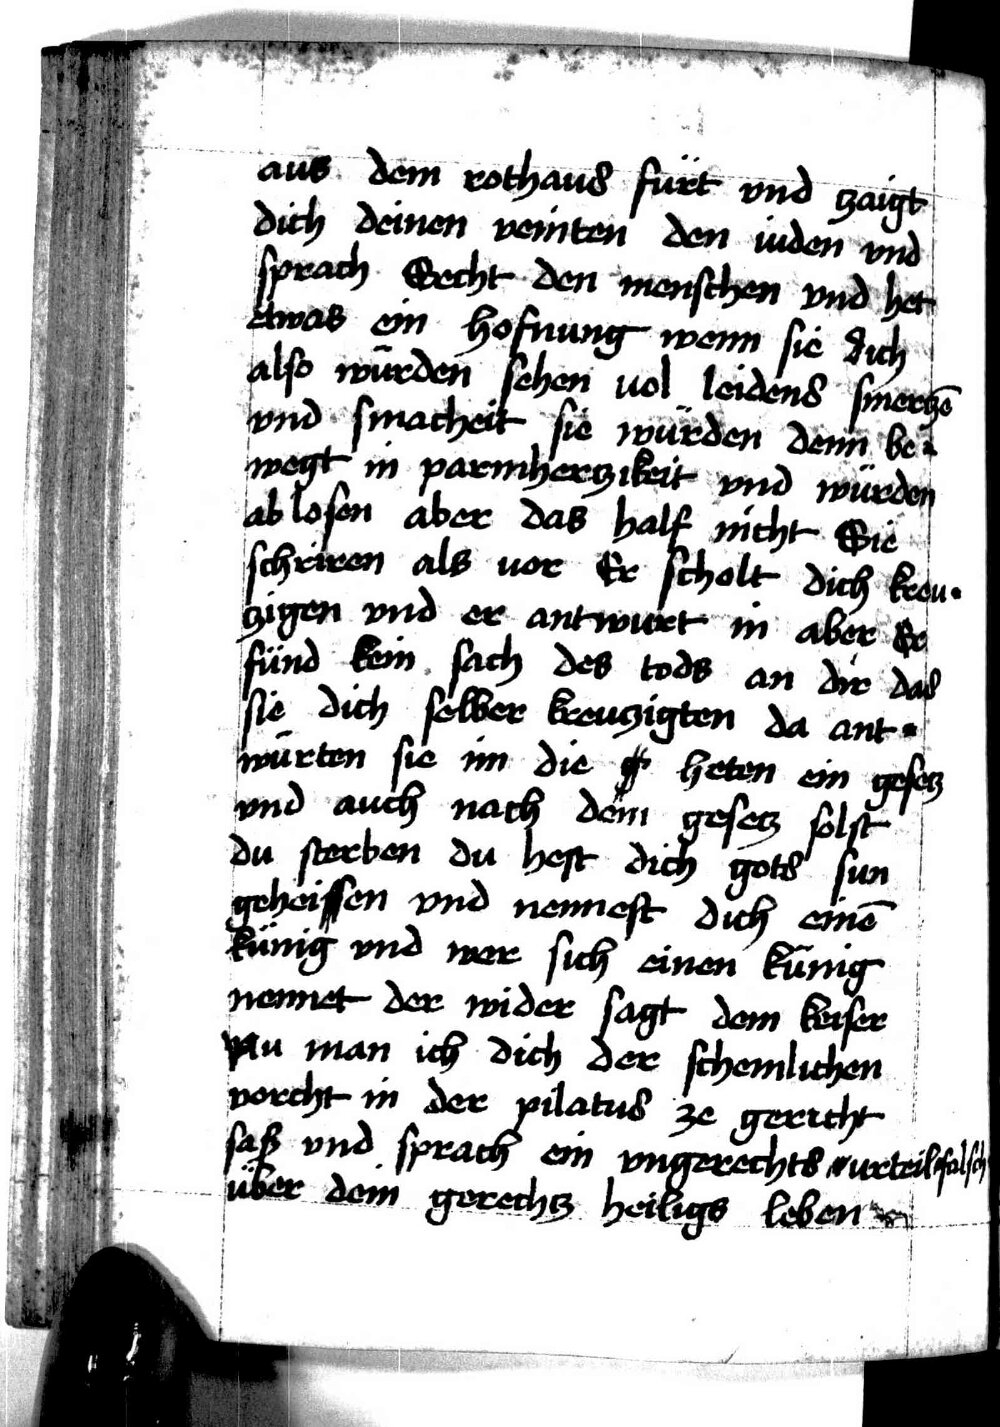 aus dem rothaus fürt vnd zaigt
dich deinen veinten den iuden vnd
sprach Secht den menschen vnd het
etwas ein hofnung wenn sie dich
also würden sehen uol leidens smerczē
vnd smacheit sie würden denn be-
wegt in parmherczikeit vnd würden
ab losen aber das half nicht Sie
schriren als vor Er scholt dich kreu-
zigen vnd er antwurt in aber Er
fünd kein sach des tods an dir das
sie dich selber kreuczigten da ant-
würten sie im die heten ein gesecz
vnd auch nach dem gesecz solst
du sterben du hest dich gots sun
geheissen vnd nennest dich einē
künig vnd wer sich einen künig
nennet der wider sagt dem keiser
Nu man ich dich der schemlichen
vorcht in der pilatus ze gericht
saß vnd sprach ein vngerechts vrteil falsch
über dein gerechcz heiligs leben